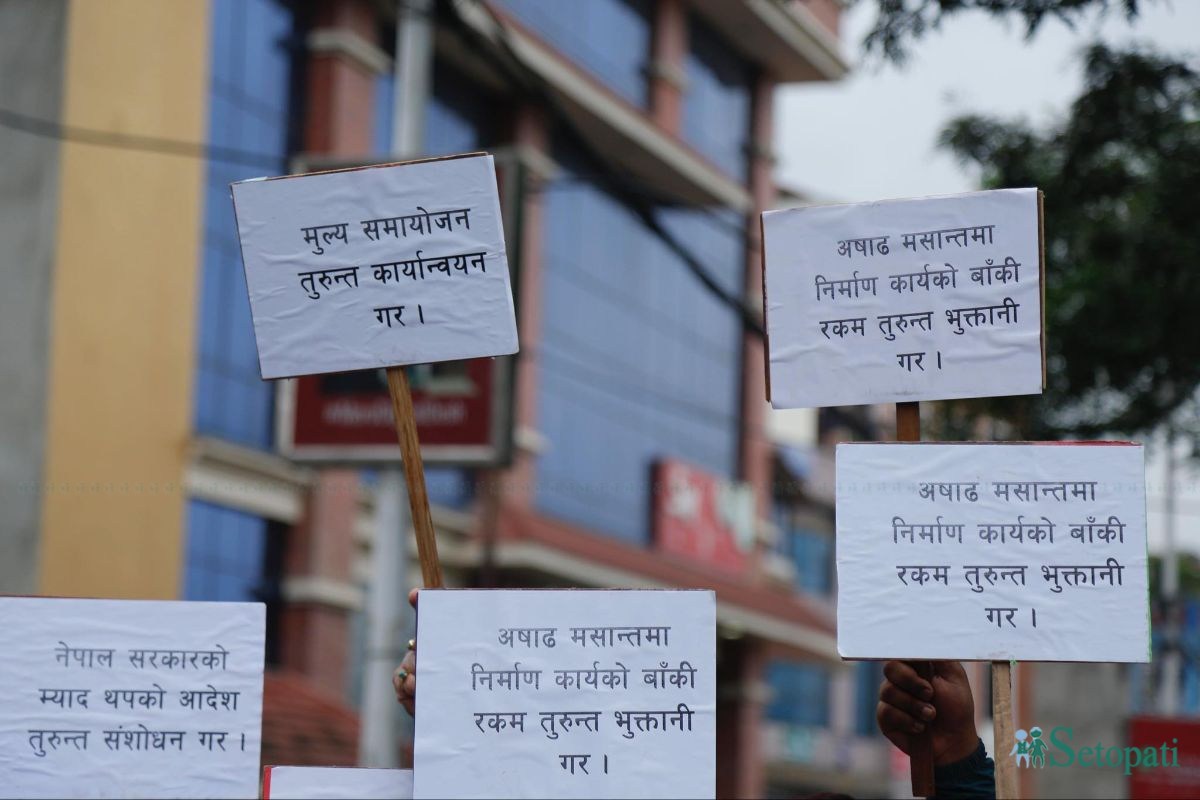 मुल्य समायोजन
तुरुन्त कार्यान्वयन
गर ।
अषाढ मसान्तमा
निर्माण कार्यको बाँकी
रकम तुरुन्त भुक्तानी
गर ।
अषाढ मसान्तमा
निर्माण कार्यको बाँकी
रकम तुरुन्त भुक्तानी
गर ।
नेपाल सरकारको
म्याद थपको आदेश
तुरुन्त संशोधन गर ।
अषाढ मसान्तमा
निर्माण कार्यको बाँकी
रकम तुरुन्त भुक्तानी
गर ।
Setopati